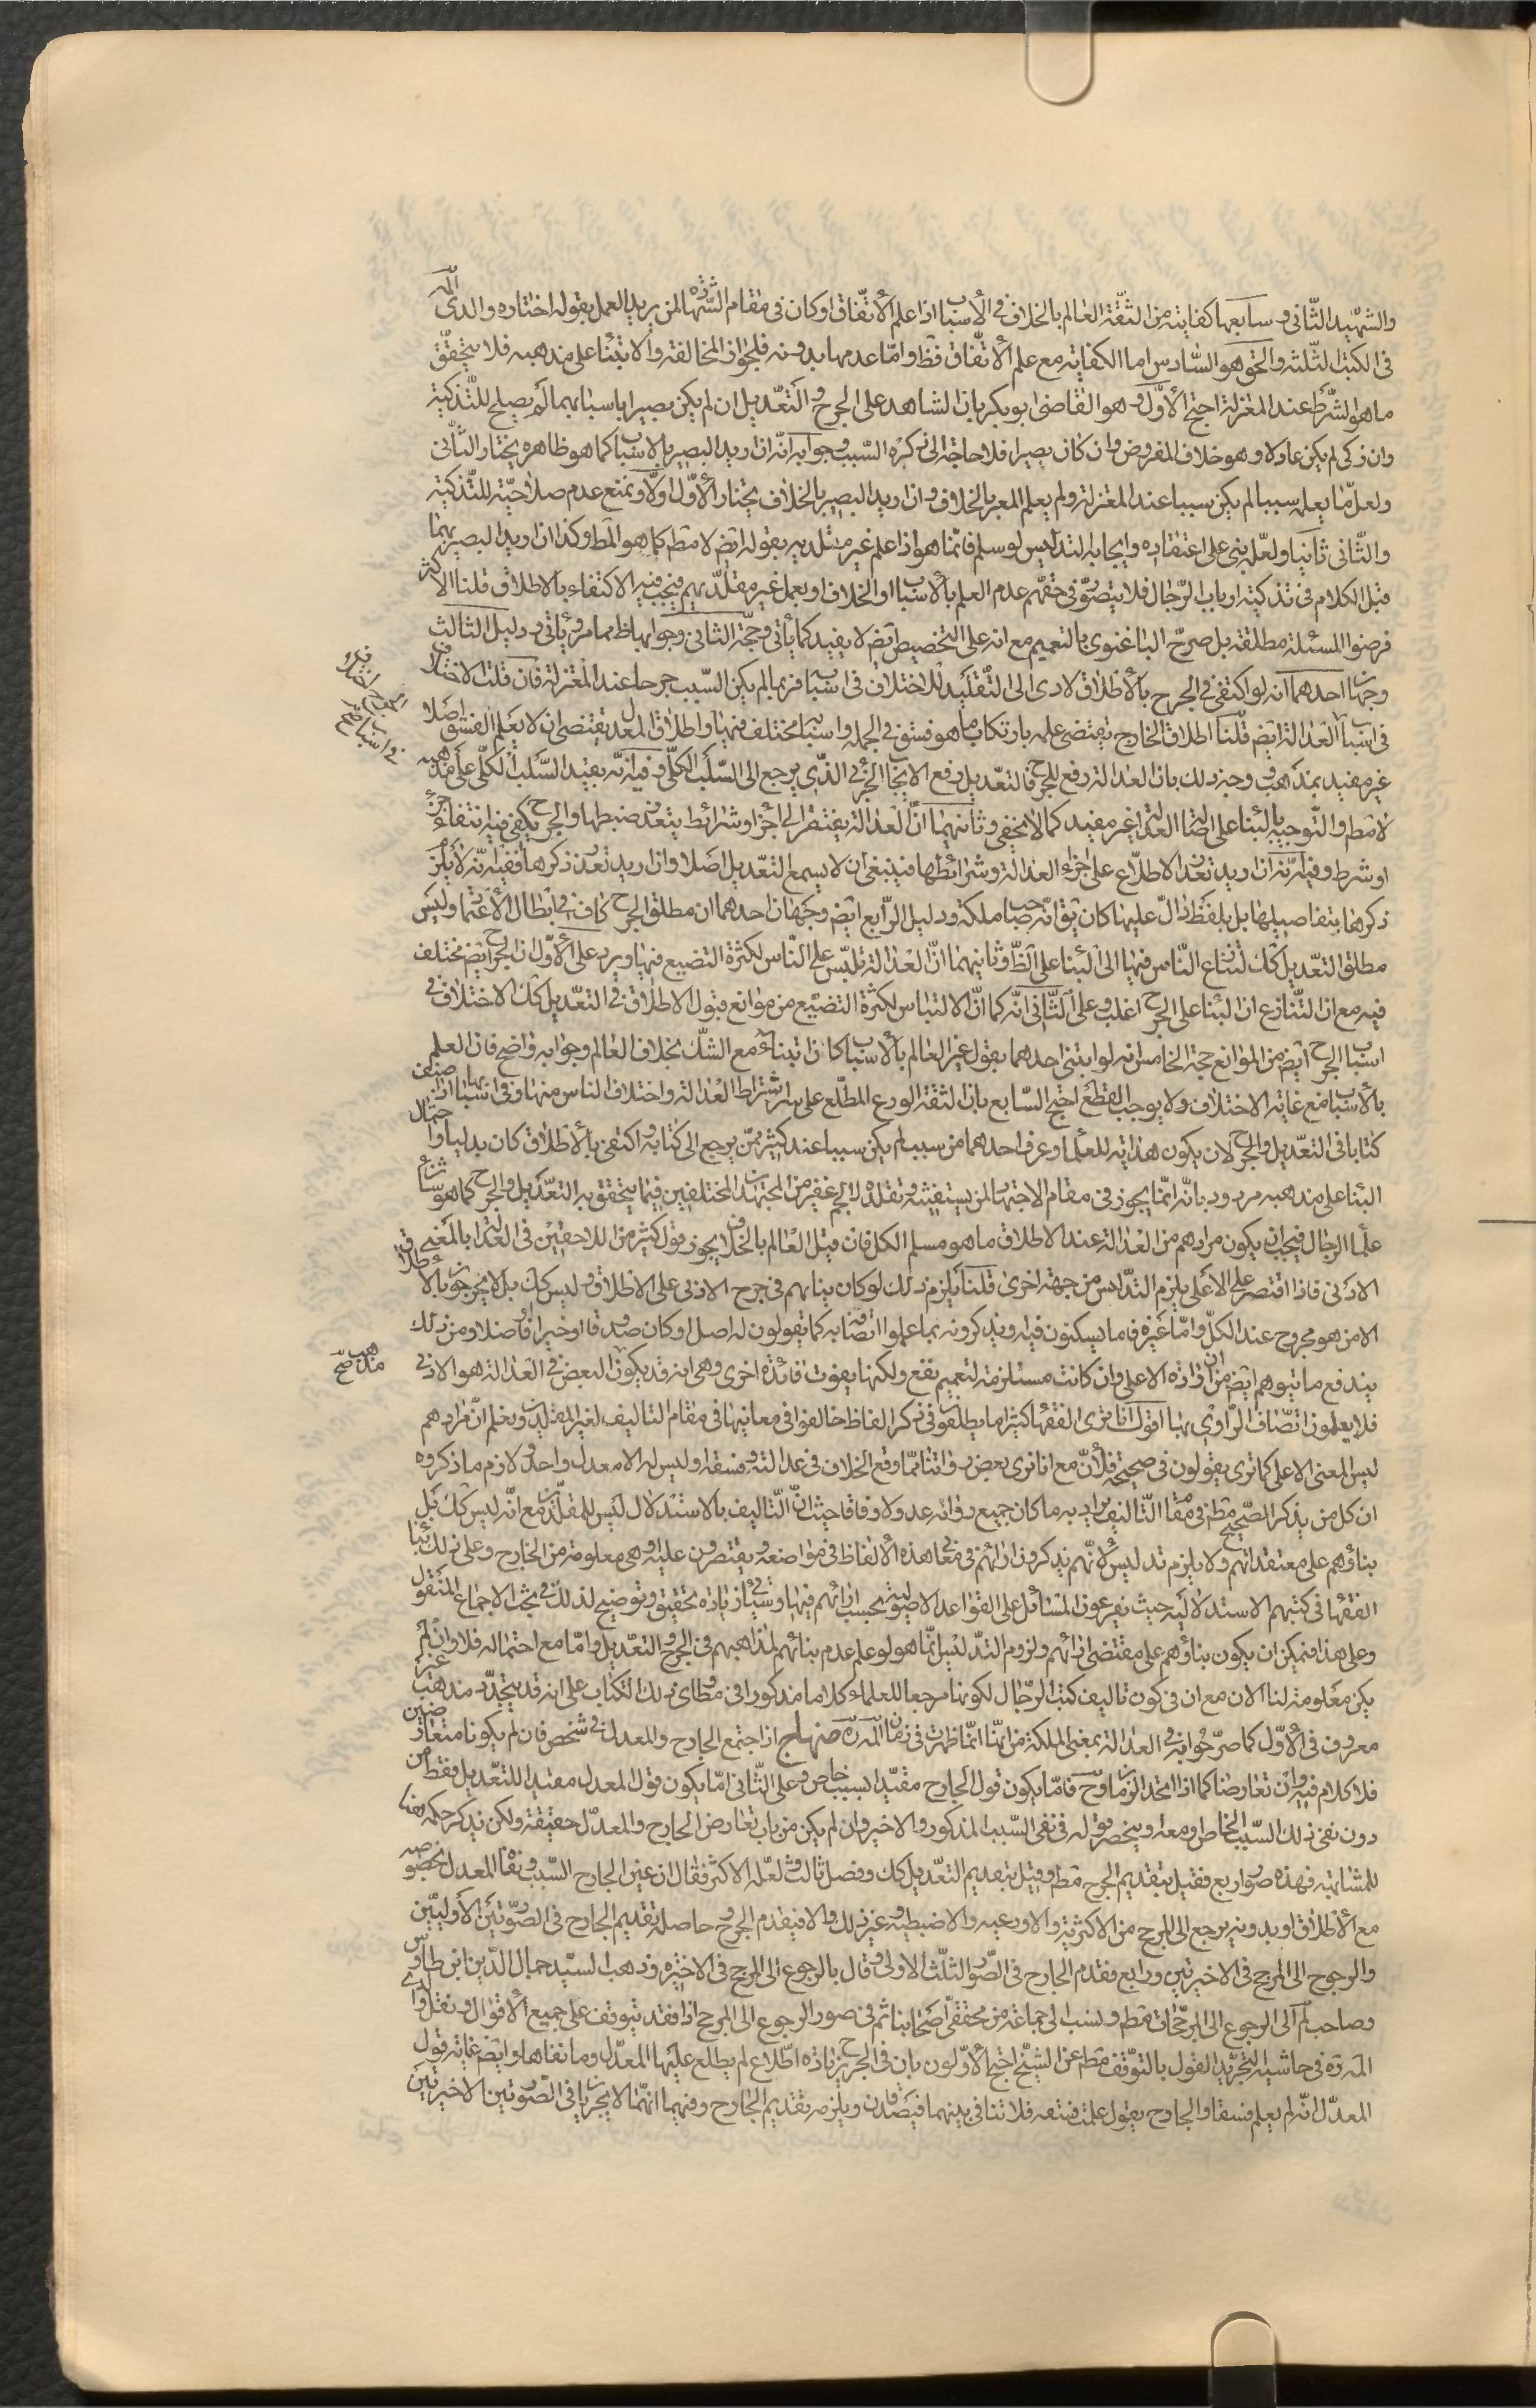 والشهيد الثاني وسابعها كفايته من الثقة العالم بالخلاف في الأسباب اذا علم الاتفاق او كان في مقام الشهادة لمن يريد العمل بقوله اختاره والدي
في الكتب الثلثة والحق هو السادس اما الكفاية مع علم الاتفاق فظ واما عدمها بدونه فلجواز المخالفة والابتناء على مذهبه فلا يتحقق
ما هو الشرط عند المغزلة احتج الأول وهو القاضى ابو بكر بان الشاهد على الجرح والتعديل ان لم يكن بصيرا باسبابهما لم يصلح للتذكية
وان ذكى لم يكن عادلا وهو خلاف المفروض وان كان بصيرا فلا حاجة الى ذكره السبب وجوابه انه ان اريد البصير بالاسباب كما هو ظاهره يختار الثاني
ولعل ما يعلمه سببا لم يكن سببا عند المغزلة ولم يعلم المعبر بالخلاف وان اريد البصير بالخلاف يختار الأول اولا ونمنع عدم صلاحيته للتذكية
والثاني ثانيا ولعله بنى على اعتقاده وايجابه التدليس لو سلم فانما هو اذا علم غير مقلديه بقوله ايض لا مطم كما هو المط وكذا ان اريد البصير بهما
قبل الكلام في تذكية ارباب الرجال فلا يتصور في حقهم عدم العلم بالاسباب او الخلاف او بعمل غير مقلديهم فيجب فيه الاكتفاء بالاطلاق قلنا الاكثر
فرضوا المسئلة مطلقة بل صرح الباغنوى بالتعميم مع انه على التخصيص ايض لا يفيد كما يأتى وحجة الثانى وجوابها ظ مما مر ويأتي ودليل الثالث
وجهان احدهما انه لو اكتفى في الجرح بالاطلاق لادى الى التقليد للاختلاف في اسبابه فربما لم يكن السبب جرحا عند المغزلة فان قلت الاختلاف
في اسباب العدالة ايض قلنا اطلاق الجارح يقتضى علمه بارتكاب ما هو فسق في الجملة واسبابه مختلف فيها واطلاق المعدل يقتضى ان لا يعلم الفسق اصلا
غير مفيد بمذهب وجه ذلك بان العدالة رفع للجرح فالتعديل رفع الايجاب الجزئى الذي يرجع الى السلب الكلى وفيه انه يفيد السلب الكلى على مذهبه
لا مطم والتوجيه بالبناء على اصالة العدالة غير مفيد كما لا يخفى وثانيهما ان العدالة يفتقر الى اجزاء وشرائط يتعذر ضبطها والجرح يكفى فيه انتفاء جزء
او شرط وفيه انه ان اريد تعذر الاطلاع على اجزاء العدالة وشرائطها فينبغى ان لا يسمع التعديل اصلا وان اريد تعذر ذكرها ففيه انه لا يلزم
ذكرها بتفاصيلها بل بلفظ دال عليها كان يق انه صاحب ملكة ودليل الرابع ايض وجهان احدهما ان مطلق الجرح كاف في ابطال الاعتماد وليس
مطلق التعديل كك لتسارع الناس فيها الى البناء على الظ وثانيهما ان العدالة تلتبس على الناس لكثرة التصنع فيها ويرد على الأول ان الجرح ايض مختلف
فيه مع ان التنازع ان البناء على الجرح اغلب وعلى الثاني انه كما ان الالتباس لكثرة التصنع من موانع قبول الاطلاق في التعديل كك الاختلاف في
اسباب الجرح ايض من الموانع حجة الخامس انه لو ابتنى احدهما بقول غير العالم بالأسباب كان ابتناء مع الشك بخلاف العالم وجوابه واضح فان العلم
بالأسباب مع غاية الاختلاف ولا يوجب القطع احتج السابع بان الثقة الورع المطلع على سائر اشتراط العدالة واختلاف الناس منها وفي اسبابها اذا صنف
كتابا في التعديل والجرح لان يكون هداية للعلماء وعرف احدهما من سبب لم يكن سببا عند كثير ممن يرجع الى كتابه واكتفى بالاطلاق كان تدليسا واحتمال
البناء على مذهبه مردود بانه انما يجوز في مقام الاجتهاد لمن يستفيته وتقلده لا لجم غفير من المجتهدين المختلفين فيما يتحقق به التعديل والجرح كما هو شأن
علماء الرجال فيجب ان يكون مرادهم من العدالة عند الاطلاق ما هو مسلم الكل فان قيل العالم بالخلاف لا يجوز قول كثير من اللاحقين في العدالة بالمعنى
الادنى فاذا اقتصر على الاعلى يلزم التدليس من جهة اخرى قلنا يلزم ذلك لو كان بنائهم في جرح الادنى على الاطلاق وليس كك بل لا يجرحون بالاطلاق
الا من هو مجروح عند الكل واما غيره فاما يسكتون فيه ويذكرونه بما علموا اتصافه به كما يقولون له اصل او كان صدوقا او خيرا فاضلا ومن ذلك
يندفع ما يتوهم ايض من ان ارادة الاعلى وان كانت مستلزمة لتعميم نفع ولكنها يفوت فائدة اخرى وهى انه قد يكون مذهب البعض في العدالة هو الادنى
فلا يعلمون اتصاف الراوى بها اقول انا نرى الفقهاء كثيرا ما يطلقون في ذكر الفاظ خالفوا في معانيها في مقام التاليف لغير المقلدين ونعلم ان مرادهم
ليس المعنى الاعلى كما ترى يقولون في صحيحة فلان مع انا نرى بعض رواتنا مما وقع الخلاف في عدالته وفسقه او ليس له الا معدل واحد ولازم ما ذكروه
ان كل من يذكر الصحيح مطم في مقام التأليف يراد به ما كان جميع رواته عدولا وفاقا حيث ان التأليف بالاستدلال ليس للمقلدين مع انه ليس كك بل
بناؤهم على معتقداتهم ولا يلزم تدليس لانهم يذكرون ارائهم في معانى هذه الألفاظ في مواضعه ويقتصرون عليه وهى معلومة من الخارج وعلى ذلك بناء
الفقهاء في كتبهم الاستدلالية حيث يفرعون المسائل على القواعد الاصولية بحسب ارائهم فيها وسيأتى زيادة تحقيق وتوضيح لذلك في بحث الاجماع المنقول
وعلى هذا فيمكن ان يكون بناؤهم على مقتضى ارائهم ولزوم التدليس انما هو لو علم عدم بنائهم لمذاهبهم في الجرح والتعديل واما مع احتماله فلا وان لم
يكن معلومة لنا الان مع ان في كون تاليف كتب الرجال لكونها مرجعا للعلماء كلاما مذكورا في مطاوى ذلك الكتاب على انه قد يتجدد مذهب غير
معروف في الأول كما صرحوا به في العدالة بمعنى الملكة من انها انما ظهرت في زمان العلامة ره منهاج اذا اجتمع الجارح والمعدل في شخص فان لم يكونا متعارضين
فلا كلام فيه وان تعارضا كما اذا اتحد الزمان وح فاما يكون قول الجارح مقيدا بسبب خاص وعلى الثانى اما يكون قول المعدل مفيدا للتعديل فقط من
دون نفى ذلك السبب الخاص او معه او ينحصر قوله في نفى السبب المذكور والاخير وان لم يكن من باب تعارض الجارح والمعدل حقيقة ولكن يذكر حكمه هنا
للمشابهة فهذه صور اربع فقيل بتقديم الجرح مطم وقيل بتقديم التعديل كك وفصل ثالث ولعله الاكثر فقال ان عين الجارح السبب ونفاه المعدل بخصوصه
مع الاطلاق او بدونه يرجع الى المرجح من الاكثرية والاورعية والاضبطية وغير ذلك والا فيقدم الجرح وحاصله تقديم الجارح في الصورتين الأوليين
والرجوع الى المرجح في الاخيرتين ورابع فقدم الجارح في الصور الثلث الاولى وقال بالرجوع الى المرجح في الاخيرة وذهب السيد جمال الدين ابن طاوس
وصاحب لم الى الرجوع الى المرجحات مطم ونسب الى جماعة من محققى اصحابنا ثم في صور الرجوع الى المرجح اذا فقد يتوقف على جميع الأقوال ونقل والدى
العلامة ره في حاشية التجريد القول بالتوقف مطم عن الشيخ احتج الأولون بان في الجرح زيادة اطلاع لم يطلع عليها المعدل وما نفاها وايض غاية قول
المعدل انه لم يعلم فسقا والجارح يقول علمت فسقه فلا تنافي بينهما فيصدقان ويلزمه تقديم الجارح وفيهما انهما لا يجريان في الصورتين الاخيرتين